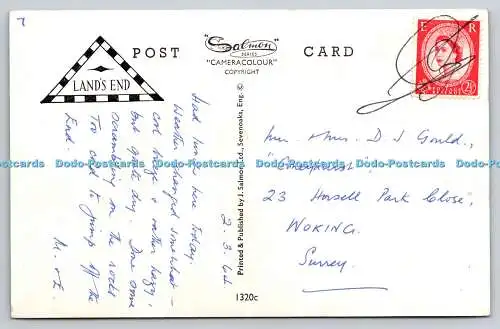 7
POST CARD
Salmon
SERIES
"CAMERACOLOUR"
COPYRIGHT
LAND'S END
E R
POSTAGE
2½D
2. 3. 64
Had lunch here today.
Weather changed somewhat -
cool breeze & rather hazy,
but quite dry. Done some
scrambling on the rocks
Too cold to jump off the
End.
M. & E.
Printed & Published by J. Salmon Ltd., Sevenoaks, Eng. ©
1320c
Mr. & Mrs. D J Gould,
23 Horsell Park Close,
WOKING.
Surrey.
Dodo-Postcards Dodo-Postcards Dodo-Postcards Dodo-Postcards